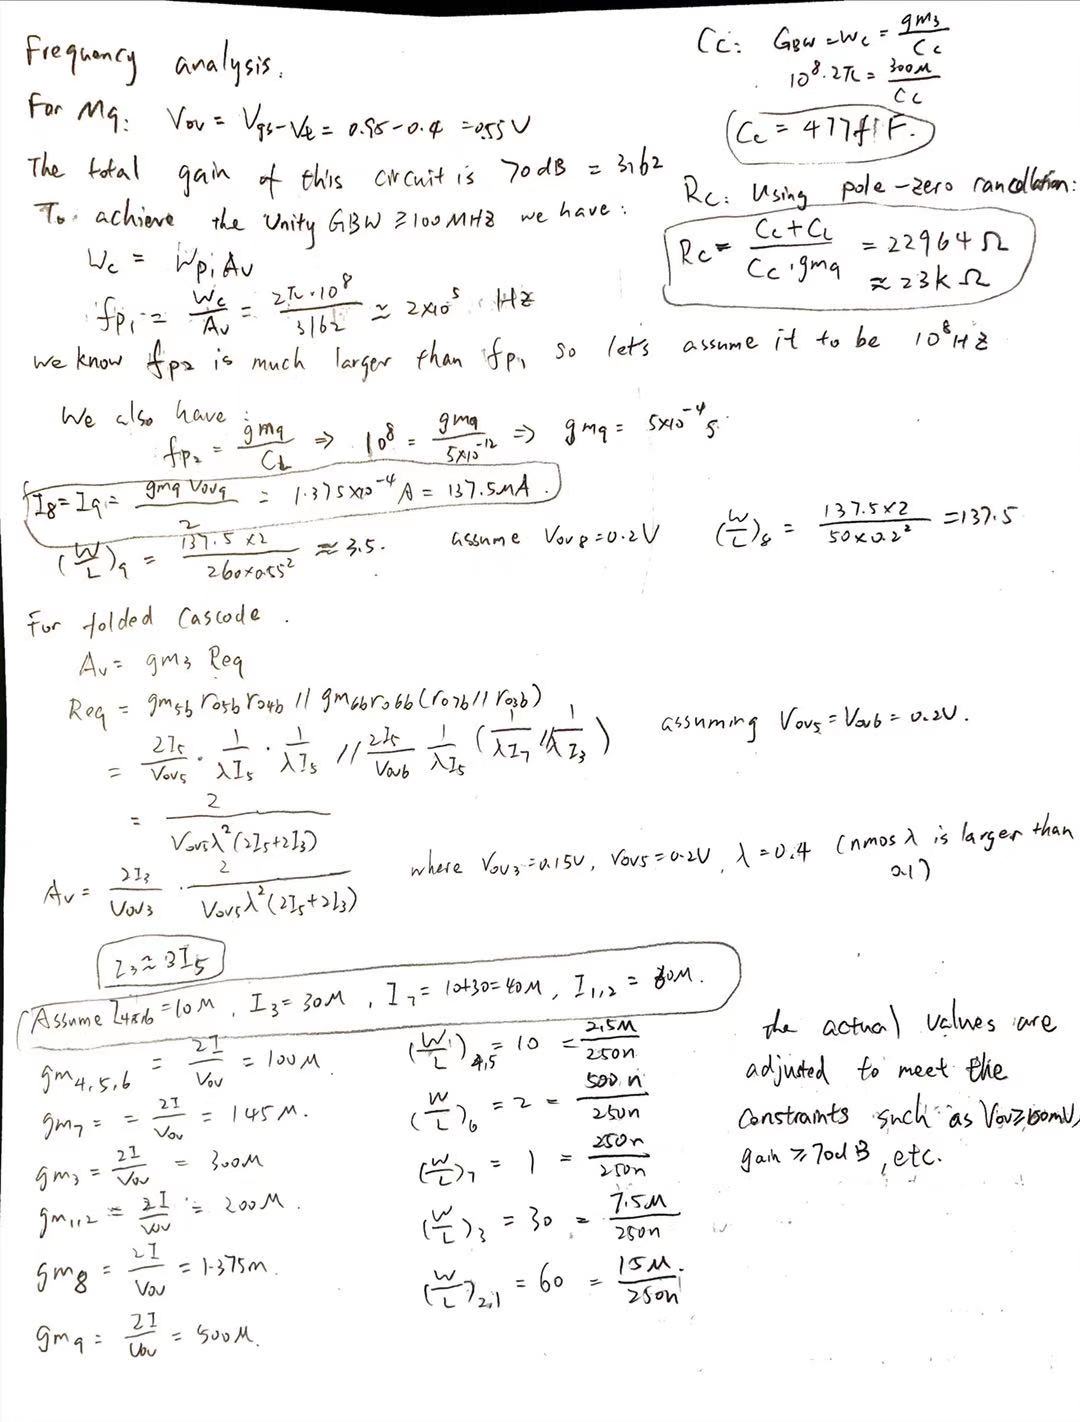 Frequency analysis.
For M9: Vov = Vgs-Vt = 0.95-0.4 = 0.55V
The total gain of this circuit is 70dB = 3162
To achieve the Unity GBW ≥100MHZ we have:
Wc = Wp1 Av
fp1 = Wc/Av = 2π·10^8/3162 ≈ 2×10^5 HZ
we know fp2 is much larger than fp1 so let's assume it to be 10^8 HZ
We also have :
fp2 = gm9/CL ⇒ 10^8 = gm9/5×10^-12 ⇒ gm9 = 5×10^-4 S
I8=I9= gm9 Vov9/2 = 1.375×10^-4 A = 137.5MA.
(W/L)9 = 137.5×2/260×0.55^2 ≈ 3.5. assume Vov8=0.2V (W/L)8 = 137.5×2/50×0.2^2 = 137.5
Cc: GBW=Wc = gm3/Cc
10^8·2π = 300M/Cc
Cc = 477f F.
Rc: Using pole-zero cancellation:
Rc = Cc+CL/Cc·gm9 = 22964 Ω
≈ 23k Ω
For folded Cascode.
Av = gm3 Req
Req = gm5b ro5b ro4b // gm6b ro6b (ro7b // ro3b)
= 2I5/Vov5 · 1/λI5 · 1/λI5 // 2I5/Vov6 1/λI5 (1/λI7 // 1/λI3) assuming Vov5=Vov6=0.2V.
= 2/Vov5λ^2(2I5+2I3)
Av = 2I3/Vov3 · 2/Vov5λ^2(2I5+2I3) where Vov3=0.15V, Vov5=0.2V, λ=0.4 (nmos λ is larger than
0.1)
I3≈3I5
Assume I4,5,6=10M, I3=30M, I7=10+30=40M, I1,2=60M.
gm4,5,6 = 2I/Vov = 100M
gm7 = = 2I/Vov = 145M.
gm3 = 2I/Vov = 300M
gm1,2 = 2I/Vov = 200M.
gm8 = 2I/Vov = 1.375m.
gm9 = 2I/Vov = 500M.
(W/L)4,5 = 10 = 2.5M/250n
(W/L)6 = 2 = 500n/250n
(W/L)7 = 1 = 250n/250n
(W/L)3 = 30 = 7.5M/250n
(W/L)2,1 = 60 = 15M./250n
the actual values are
adjusted to meet the
constraints such as Vov≥150mV,
gain ≥70dB, etc.